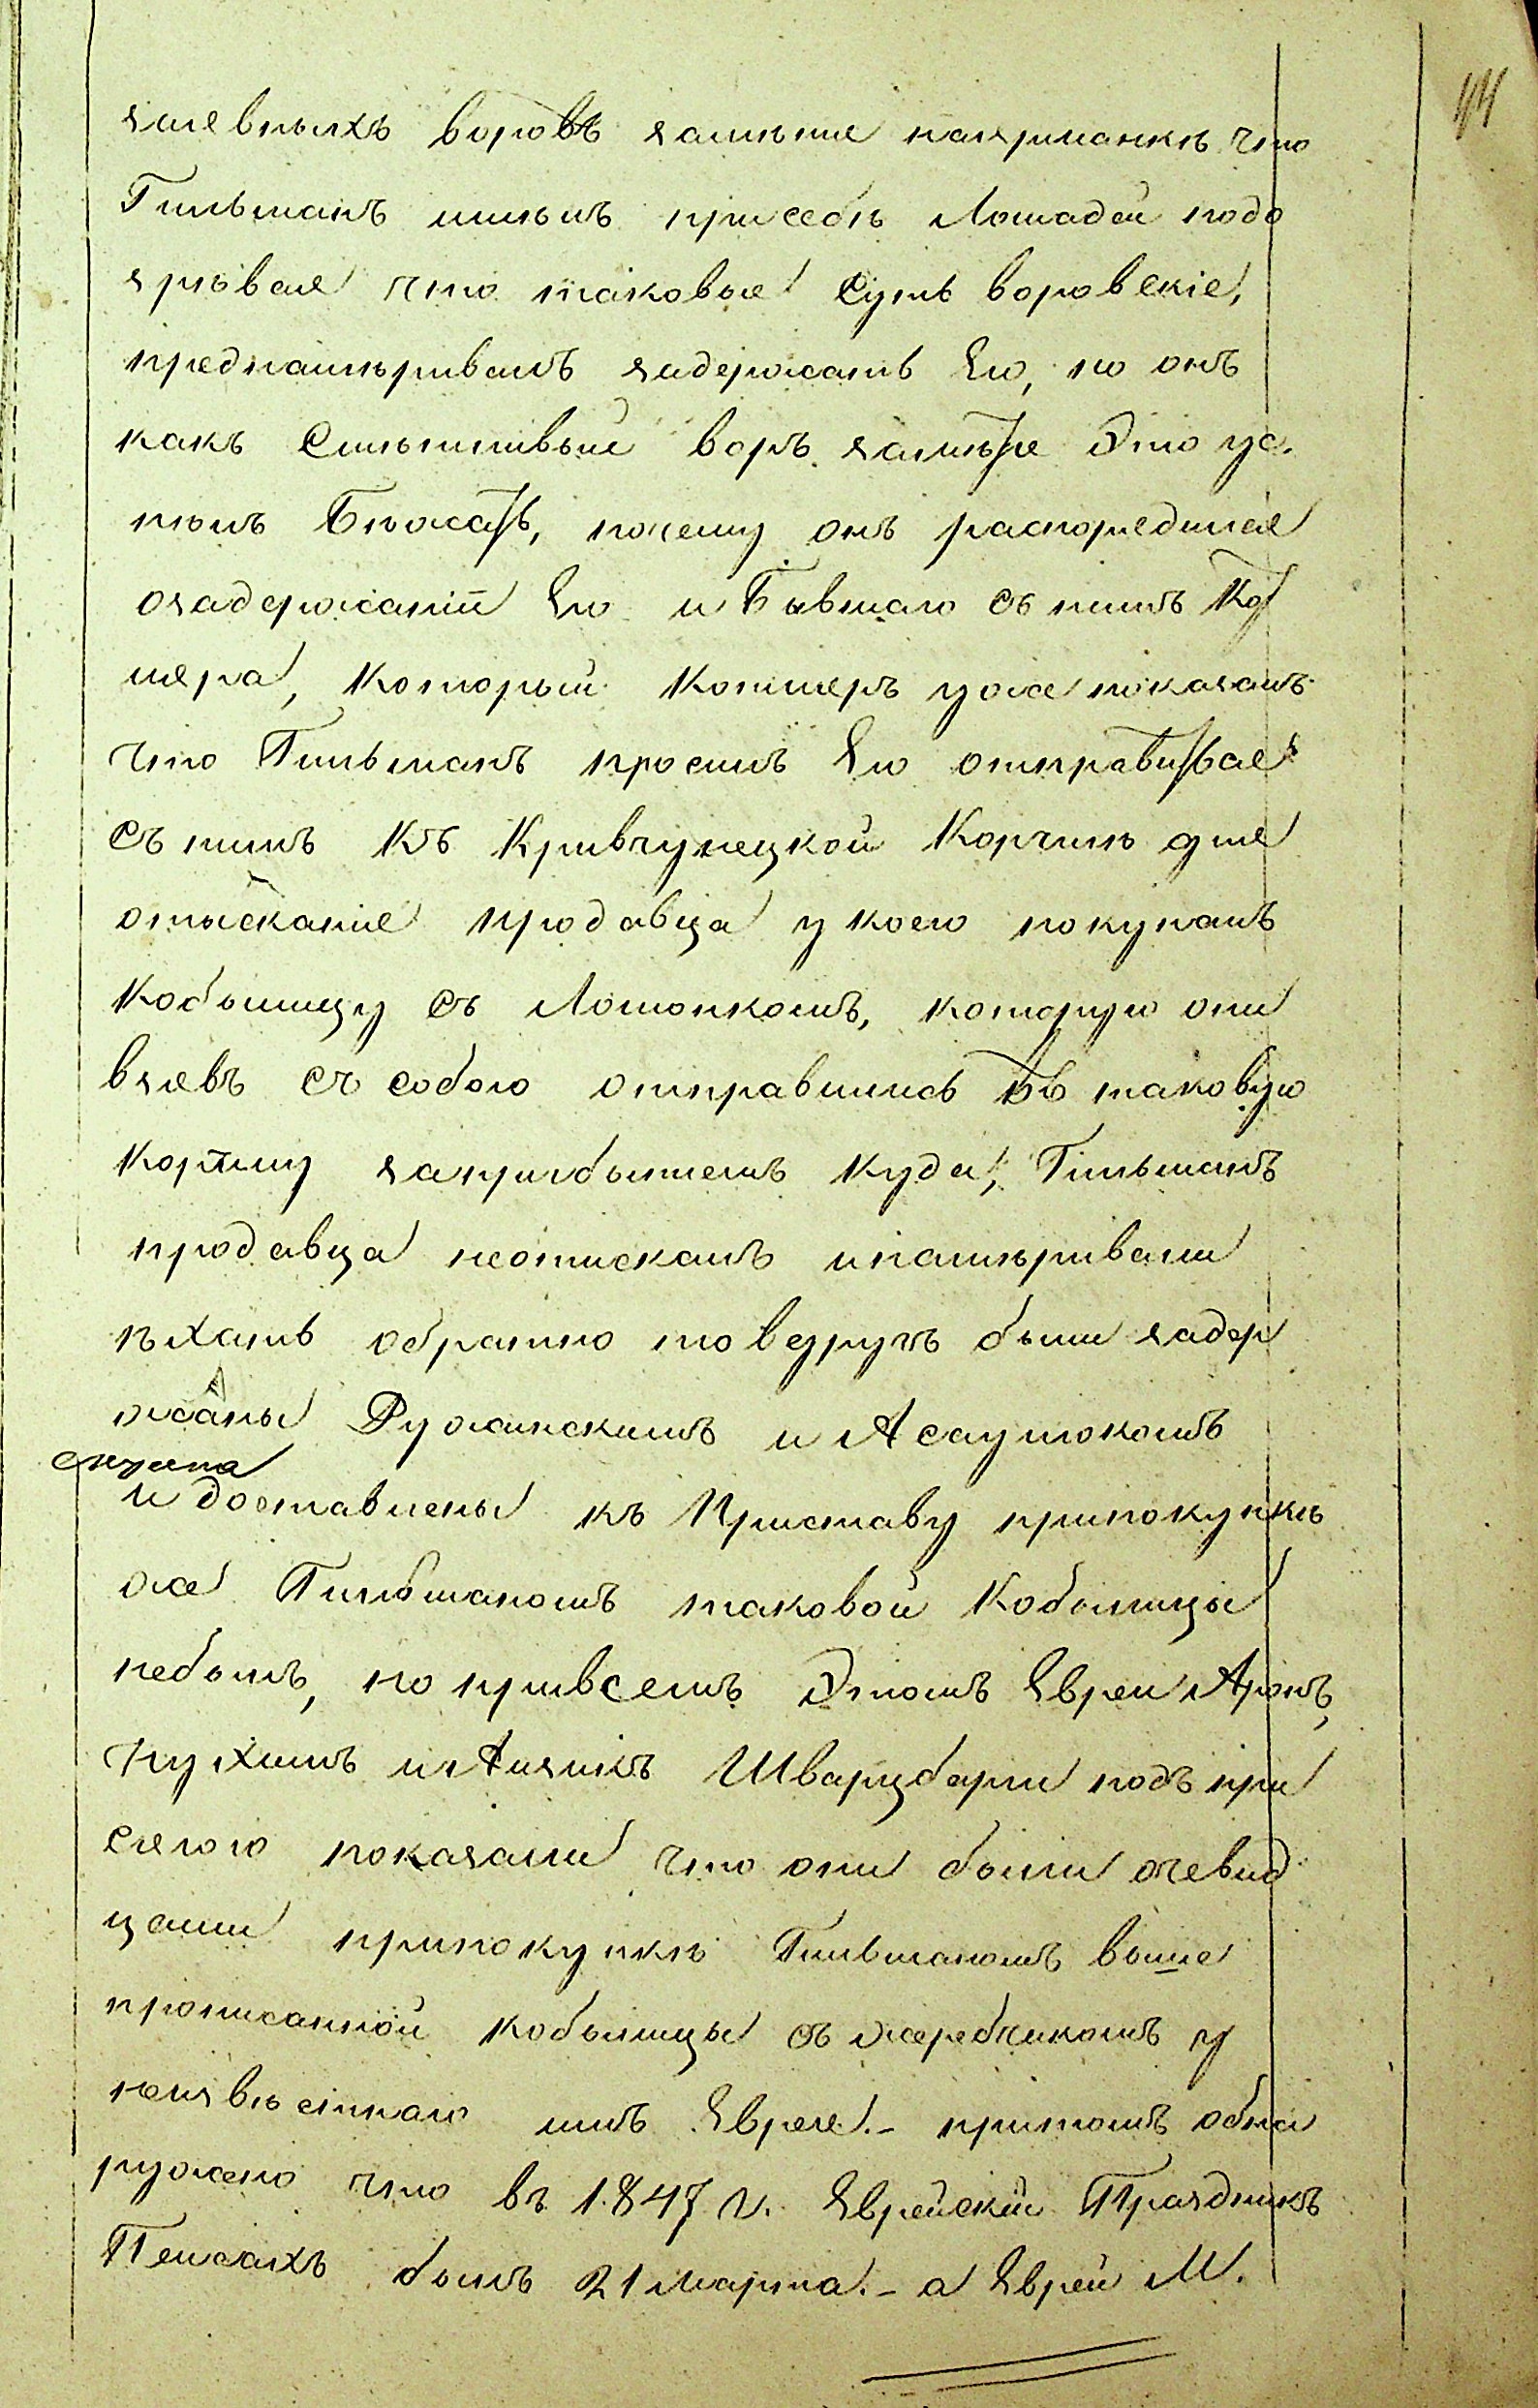 44
заевныхъ воровъ замѣтя наярманкѣ что
Гильманъ имѣлъ присебѣ Лошадей подо
зрѣвая что таковые суть воровскіе,
преднамѣривалъ задержать Его, но онъ
какъ смѣтливый воръ замѣтя Это ус.
пѣлъ Бѣжать, почему онъ распорядился
озадержаніи Его и Бывшаго съ нимъ Ко
мера, который Котмеръ уже показалъ
что Гильманъ просилъ Его отправится
съ нимъ къ Кривчунецкой Корчмѣ для
отысканія продавца у коего покупалъ
кобылицу съ Лошонкомъ, которую они
взявъ съ собою отправились въ таковую
корчму заприбытіемъ куда, Гильманъ
продавца неотискалъ инамѣривали
ѣхать обратно то ведругъ были задер
жаны Ружинскимъ и Асаулокомъ
и доставлены къ Приставу припокупкѣ
же Гильманомъ таковой Кобылицы
небылъ, но привсемъ Этомъ Евреи Аронъ,
Нухимъ и Аизикъ Шварцберги подъ при
сягою показали что они были очевид
цами припокупкѣ Гильманомъ выше
прописанной кобылицы съ жеребчикомъ у
неизвѣстнаго имъ Еврея.- притомъ обна
ружено что въ 1847 г. Еврейскій Праздникъ
Пейсахъ былъ 21 Марта.- а Еврей М.